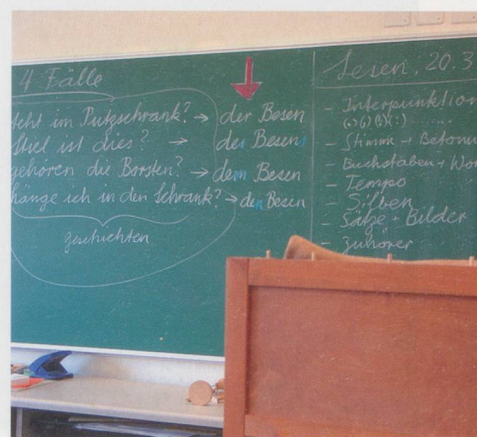 4 Fälle
teht im Putzschrank? → der Besen
Stiel ist dies? → des Besens
gehören die Borsten? → dem Besen
hänge ich in den Schrank? → den Besen
Geschichten
Lesen, 20.3
- Interpunktion
- Stimme + Betonu
- Buchstaben + Wör
- Tempo
- Silben
- Sätze + Bilder
- Zuhörer